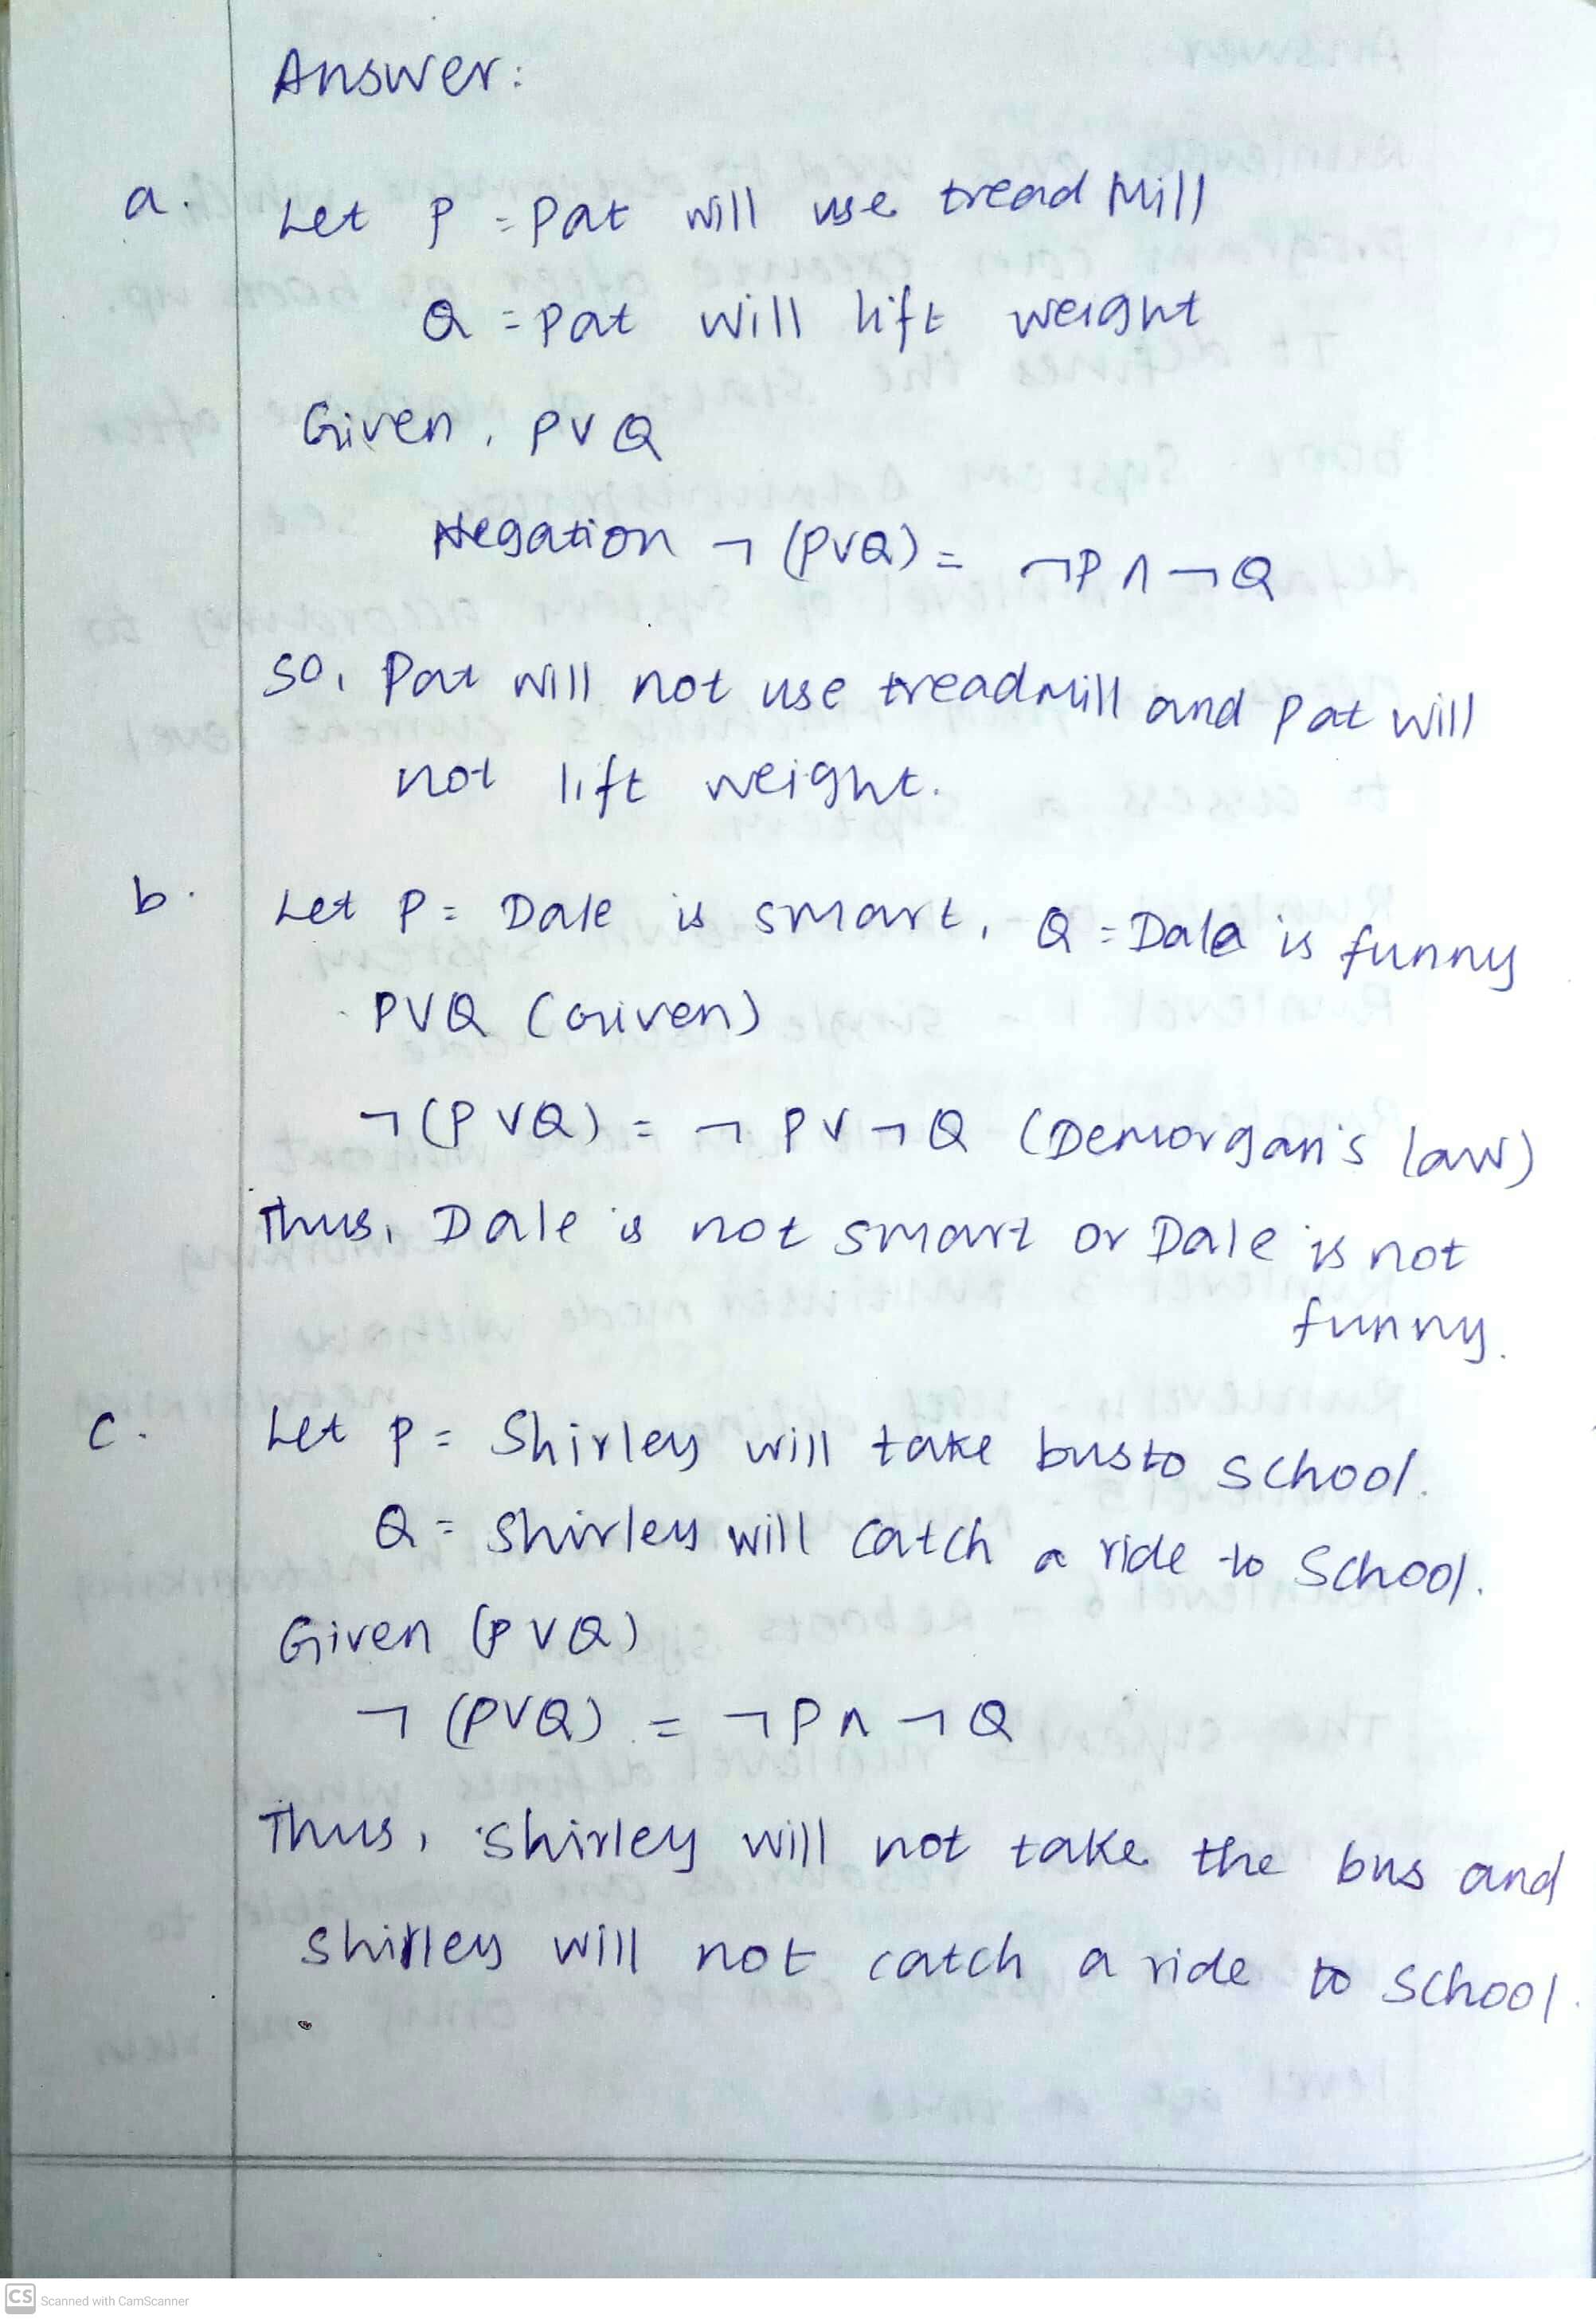 Answer:
a. Let P = Pat will use tread Mill
Q = Pat will lift weight
Given, P∨Q
Negation ¬ (P∨Q) = ¬P ∧ ¬Q
So, Pat will not use treadmill and Pat will
not lift weight.
b. Let P = Dale is smart, Q = Dale is funny
P∨Q (Given)
¬(P∨Q) = ¬P∨¬Q (Demorgan's law)
Thus, Dale is not smart or Dale is not
funny.
c. Let P = Shirley will take bus to school.
Q = Shirley will catch a ride to School.
Given (P∨Q)
¬ (P∨Q) = ¬P ∧ ¬Q
Thus, Shirley will not take the bus and
Shirley will not catch a ride to school.
CS Scanned with CamScanner